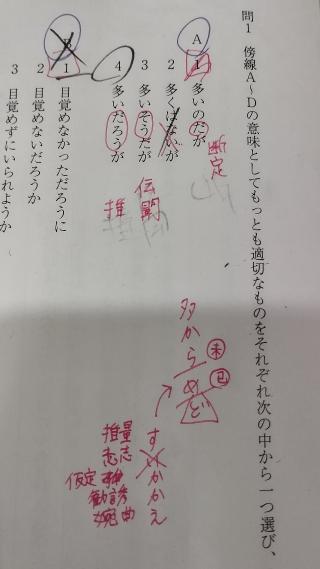 問1 傍線A～Dの意味としてもっとも適切なものをそれぞれ次の中から一つ選び、
A
1 多いのだが
断定
2 多くはないが
3 多いそうだが
伝聞
4 多いだろうが
推
1 目覚めなかっただろうに
2 目覚めないだろうか
3 目覚めずにいられようか
多からめど
未
已
すいかかえ
推量
意志
仮定
勧誘
婉曲